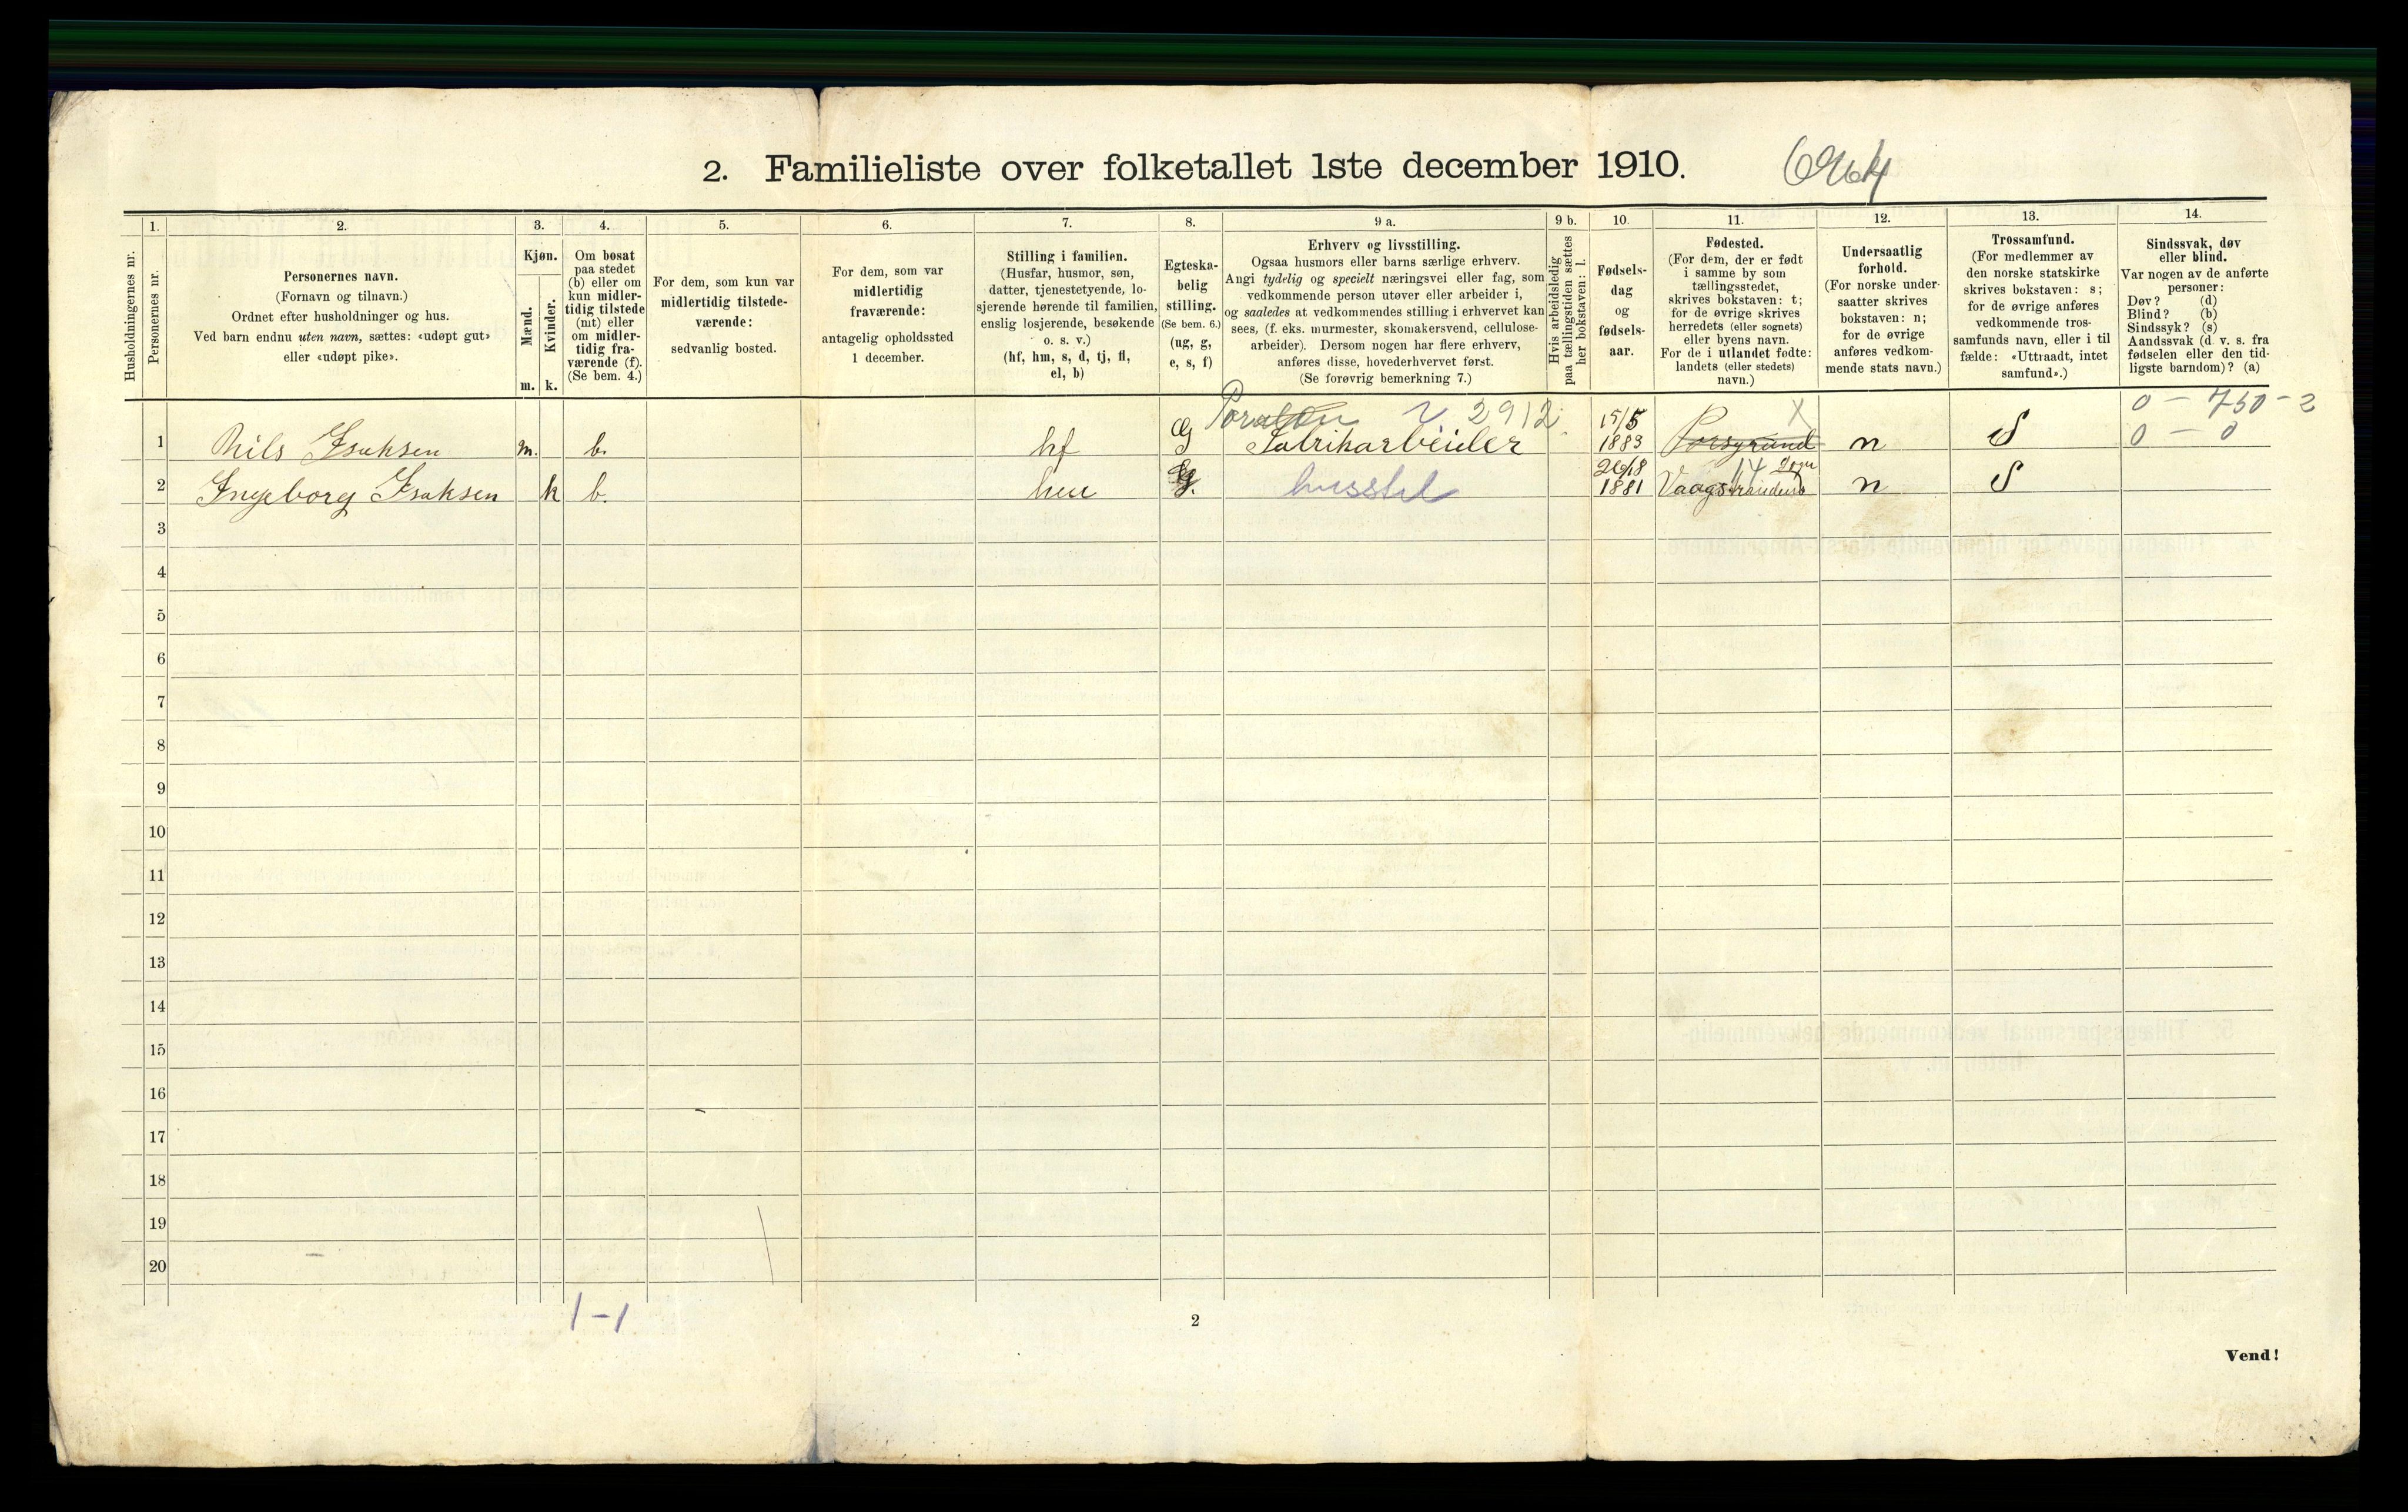 2. Familieliste over folketallet 1ste december 1910.
1. 2. 3. 4. 5. 6. 7. 8. 9 a. 9 b. 10. 11. 12. 13. 14.
Husholdningernes nr.
Personernes nr.
Personernes navn.
(Fornavn og tilnavn.)
Ordnet efter husholdninger og hus.
Ved barn endnu uten navn, sættes: «udøpt gut»
eller «udøpt pike».
Kjøn.
Mænd.
Kvinder.
m. k.
Om bosat
paa stedet
(b) eller om
kun midler-
tidig tilstede
(mt) eller
om midler-
tidig fra-
værende (f).
(Se bem. 4.)
For dem, som kun var
midlertidig tilstede-
værende:
sedvanlig bosted.
For dem, som var
midlertidig
fraværende:
antagelig opholdssted
1 december.
Stilling i familien.
(Husfar, husmor, søn,
datter, tjenestetyende, lo-
sjerende hørende til familien,
enslig losjerende, besøkende
o. s. v.)
(hf, hm, s, d, tj, fl,
el, b)
Egteska-
belig
stilling.
(Se bem. 6.)
(ug, g,
e, s, f)
Erhverv og livsstilling.
Ogsaa husmors eller barns særlige erhverv.
Angi tydelig og specielt næringsvei eller fag, som
vedkommende person utøver eller arbeider i,
og saaledes at vedkommendes stilling i erhvervet kan
sees, (f. eks. murmester, skomakersvend, cellulose-
arbeider). Dersom nogen har flere erhverv,
anføres disse, hovederhvervet først.
(Se forøvrig bemerkning 7.)
Hvis arbeidsledig
paa tællingstiden sættes
her bokstaven: l.
Fødsels-
dag
og
fødsels-
aar.
Fødested.
(For dem, der er født
i samme by som
tællingsstedet,
skrives bokstaven: t;
for de øvrige skrives
herredets (eller sognets)
eller byens navn.
For de i utlandet fødte:
landets (eller stedets)
navn.)
Undersaatlig
forhold.
(For norske under-
saatter skrives
bokstaven: n;
for de øvrige
anføres vedkom-
mende stats navn.)
Trossamfund.
(For medlemmer av
den norske statskirke
skrives bokstaven: s;
for de øvrige anføres
vedkommende tros-
samfunds navn, eller i til
fælde: «Uttraadt, intet
samfund».)
Sindssvak, døv
eller blind.
Var nogen av de anførte
personer:
Døv? (d)
Blind? (b)
Sindssyk? (s)
Aandssvak (d. v. s. fra
fødselen eller den tid-
ligste barndom)? (a)
2912 15/5 X 0 - 750 - 2
1 Nils Isaksen m. b. hf G Fabrikarbeider 1883 Porsgrund n S 0 - 0
2 Ingeborg Isaksen k b. hm g. husstel 1881 n S
3
4
5
6
7
8
9
10
11
12
13
14
15
16
17
18
19
20
1-1
2
Vend!